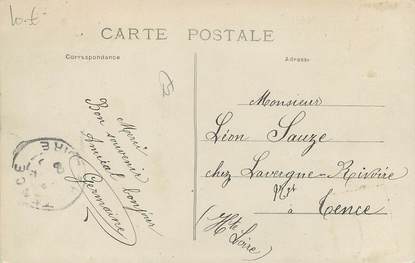 Lot
CARTE POSTALE
Correspondance
Adresse
Merci
Bon souvenir
Amical bonjour
Germaine
Monsieur
Léon Sauze
chez Lavergne-Rivoire
à Tence
(Hte Loire)
TENCE